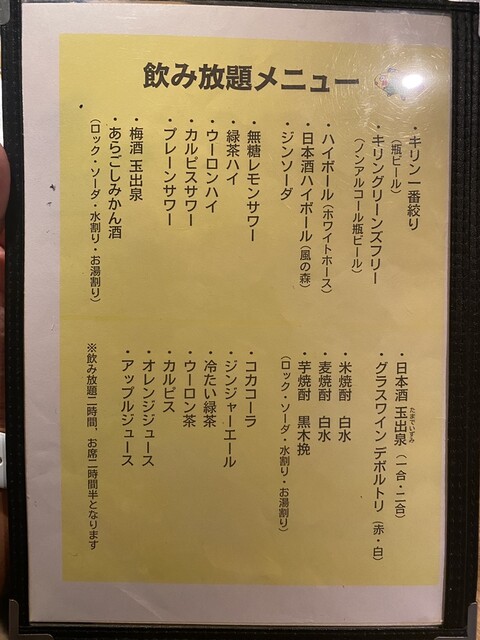 飲み放題メニュー
・キリン一番絞り
（瓶ビール）
・キリングリーンズフリー
（ノンアルコール瓶ビール）
・ハイボール（ホワイトホース）
・日本酒ハイボール（風の森）
・ジンソーダ
・無糖レモンサワー
・緑茶ハイ
・ウーロンハイ
・カルピスサワー
・プレーンサワー
・梅酒 玉出泉
・あらごしみかん酒
（ロック・ソーダ・水割り・お湯割り）
・日本酒 玉出泉（一合・二合）
たまでいずみ
・グラスワイン デボルトリ（赤・白）
・米焼酎 白水
・麦焼酎 白水
・芋焼酎 黒木挽
（ロック・ソーダ・水割り・お湯割り）
・コカコーラ
・ジンジャーエール
・冷たい緑茶
・ウーロン茶
・カルピス
・オレンジジュース
・アップルジュース
※飲み放題二時間、お席二時間半となります